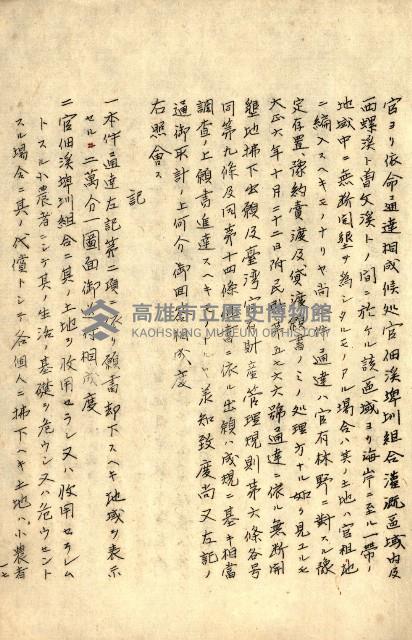 官ヨリ依命通達相成候処官佃溪埤圳組合灌漑區域内及
西螺溪ト曽文溪トノ間ニ於ケル該區域ヨリ海岸ニ至ル一帶ノ
地域中ニ無断開墾ヲ為シタルモノアル場合ハ其ノ土地ハ官租地
ニ編入スヘキモノナリヤ尚 通達ハ官有林野ニ對スル豫
定存置豫約賣渡及貸渡 ミノ処理方ナル如ク見ユルモ
大正六年十月二十二日附民 第五七六六號通達ニ依ル無断開
墾地拂下出願及臺湾官 財産管理規則第六條各号
同第九條及同第十四條 ニ依ル出願ハ成規ニ基キ相當
調査ノ上願書進達スヘキ 承知致度尚又左記ノ
通御取計ノ上何分 御回答相成度
右照會ス
記
一本件通達左記第二項 ニ 願書却下スヘキ地域ヲ表示
セル二萬分一圖面御 相成度
二官佃溪埤圳組合ニ其ノ土地ヲ收用セラレ又ハ收用セラレム
トスル小農者ニシテ其ノ生活ノ基礎ヲ危ウシ又ハ危ウセント
スル場合ニ其ノ代償トシテ各個人ニ拂下ヘキ土地ハ小農者
高雄市立歷史博物館
KAOHSIUNG MUSEUM OF HISTORY